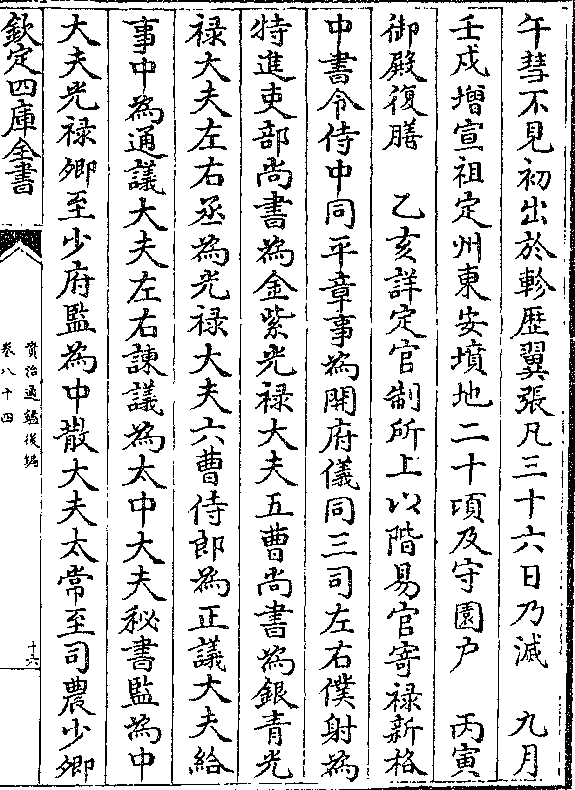 午彗不見初出於軫歴翼張凡三十六日乃滅　九月
壬戌增宣祖定州東安墳地二十頃及守園户　丙寅
御殿復膳　乙亥詳定官制所上以階易官寄禄新格
中書令侍中同平章事為開府儀同三司左右僕射為
特進吏部尚書為金紫光禄大夫五曹尚書為銀青光
禄大夫左右丞為光禄大夫六曹侍郎為正議大夫給
事中為通議大夫左右諫議為太中大夫秘書監為中
大夫光禄卿至少府監為中散大夫太常至司農少卿
欽定四庫全書
資治通鑑後編
卷八十四
十六